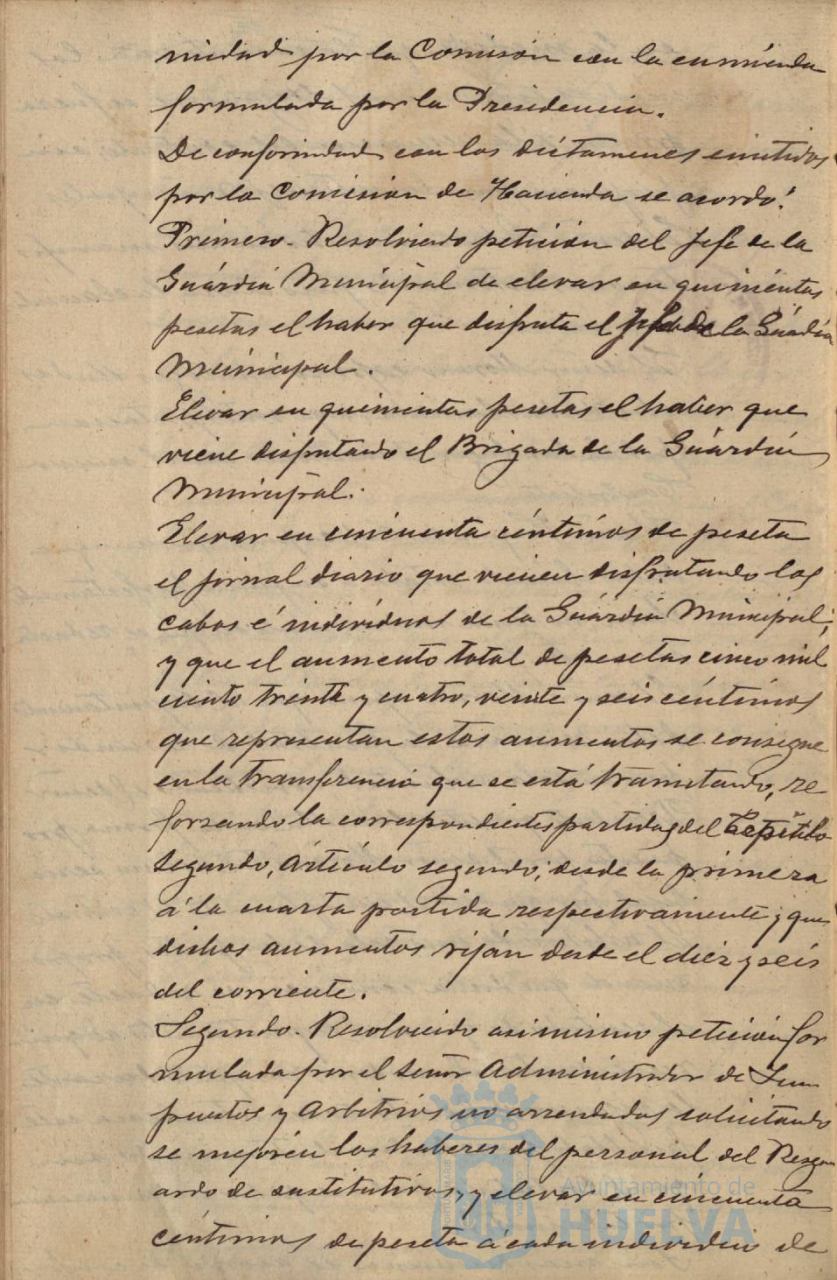 nidad por la Comisión con la enmienda
formulada por la Presidencia.
De conformidad con los dictamenes emitidos
por la Comisión de Hacienda se acordó:
Primero. Resolviendo petición del Jefe de la
Guárdia Municipal de elevar en quiniéntas
pesetas el haber que disfruta el Jefe de la Guárdia
Municipal.
Elevar en quinientas pesetas el haber que
viene disfrutando el Brigada de la Guárdia
Municipal.
Elevar en cincuenta céntimos de peseta
el jornal diario que vienen disfrutando los
cabos é indivíduos de la Guárdia Municipal;
y que el aumento total de pesetas cinco mil
ciento treinta y cuatro, veinte y seis céntimos
que representan estos aumentos se consigne
en la transferencia que se está tramitando, re
forzando la correspondientes partidas del Capítulo
segundo, Artículo segundo; desde la primera
á la cuarta partida respectivamente; y que
dichos aumentos rijan desde el diez y seis
del corriente.
Segundo. Resolviendo asi mismo petición for
mulada por el Señor Administrador de Im
puestos y Arbitrios no arrendados solicitando
se mejoren los haberes del personal del Resgu
ardo de sustitutivos, y elevar en cincuenta
céntimos de peseta á cada individuo de
Ayuntamiento de
HUELVA